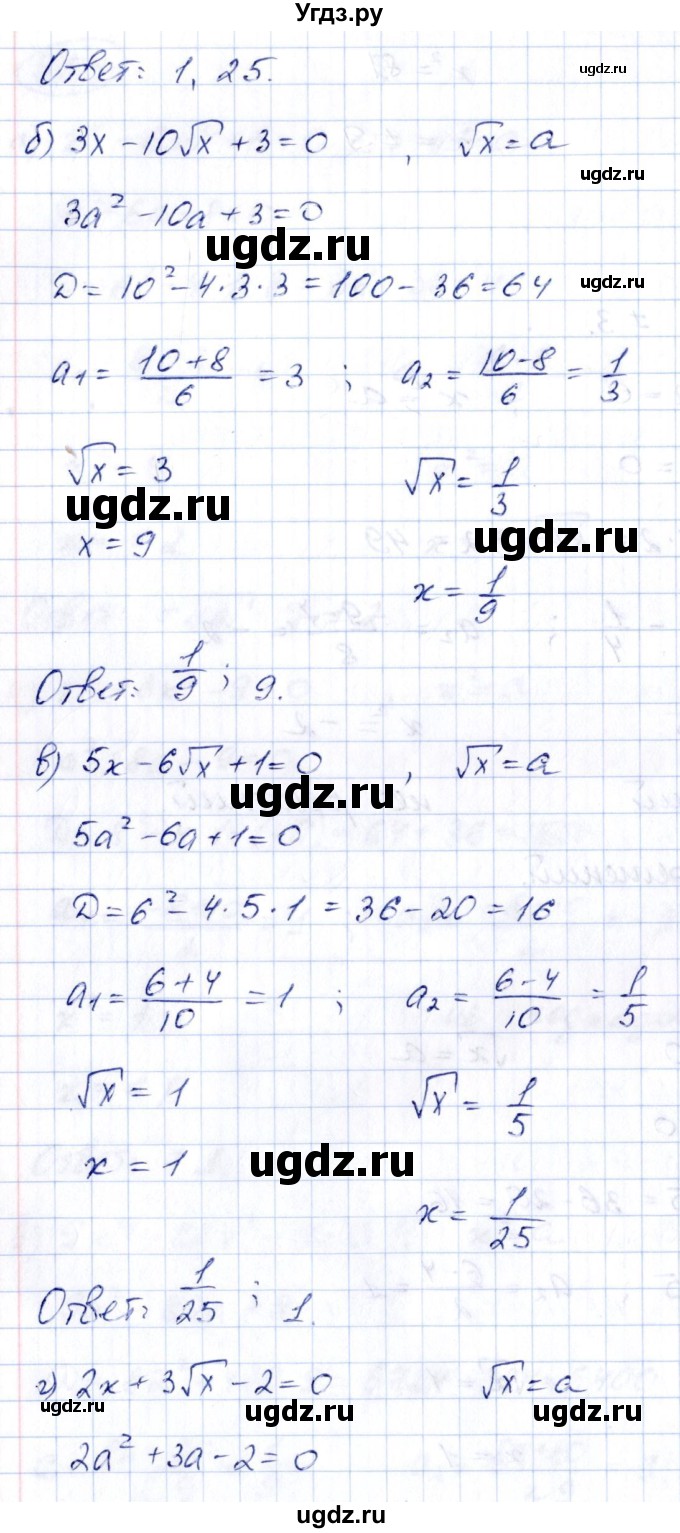 Угдз.ру
Ответ: 1, 25.
ugdz.ru
б) 3x - 10√x + 3 = 0 , √x = a
ugdz.ru
3a² - 10a + 3 = 0
ugdz.ru
D = 10² - 4·3·3 = 100 - 36 = 64
ugdz.ru
a₁ = (10+8)/6 = 3 ; a₂ = (10-8)/6 = 1/3
√x = 3 √x = 1/3
ugdz.ru
x = 9
ugdz.ru
x = 1/9
Ответ: 1/9 ; 9.
в) 5x - 6√x + 1 = 0 , √x = a
ugdz.ru
5a² - 6a + 1 = 0
D = 6² - 4·5·1 = 36 - 20 = 16
a₁ = (6+4)/10 = 1 ; a₂ = (6-4)/10 = 1/5
√x = 1 √x = 1/5
x = 1
ugdz.ru
x = 1/25
Ответ: 1/25 ; 1.
г) 2x + 3√x - 2 = 0 √x = a
ugdz.ru ugdz.ru
2a² + 3a - 2 = 0
ugdz.ru ugdz.ru